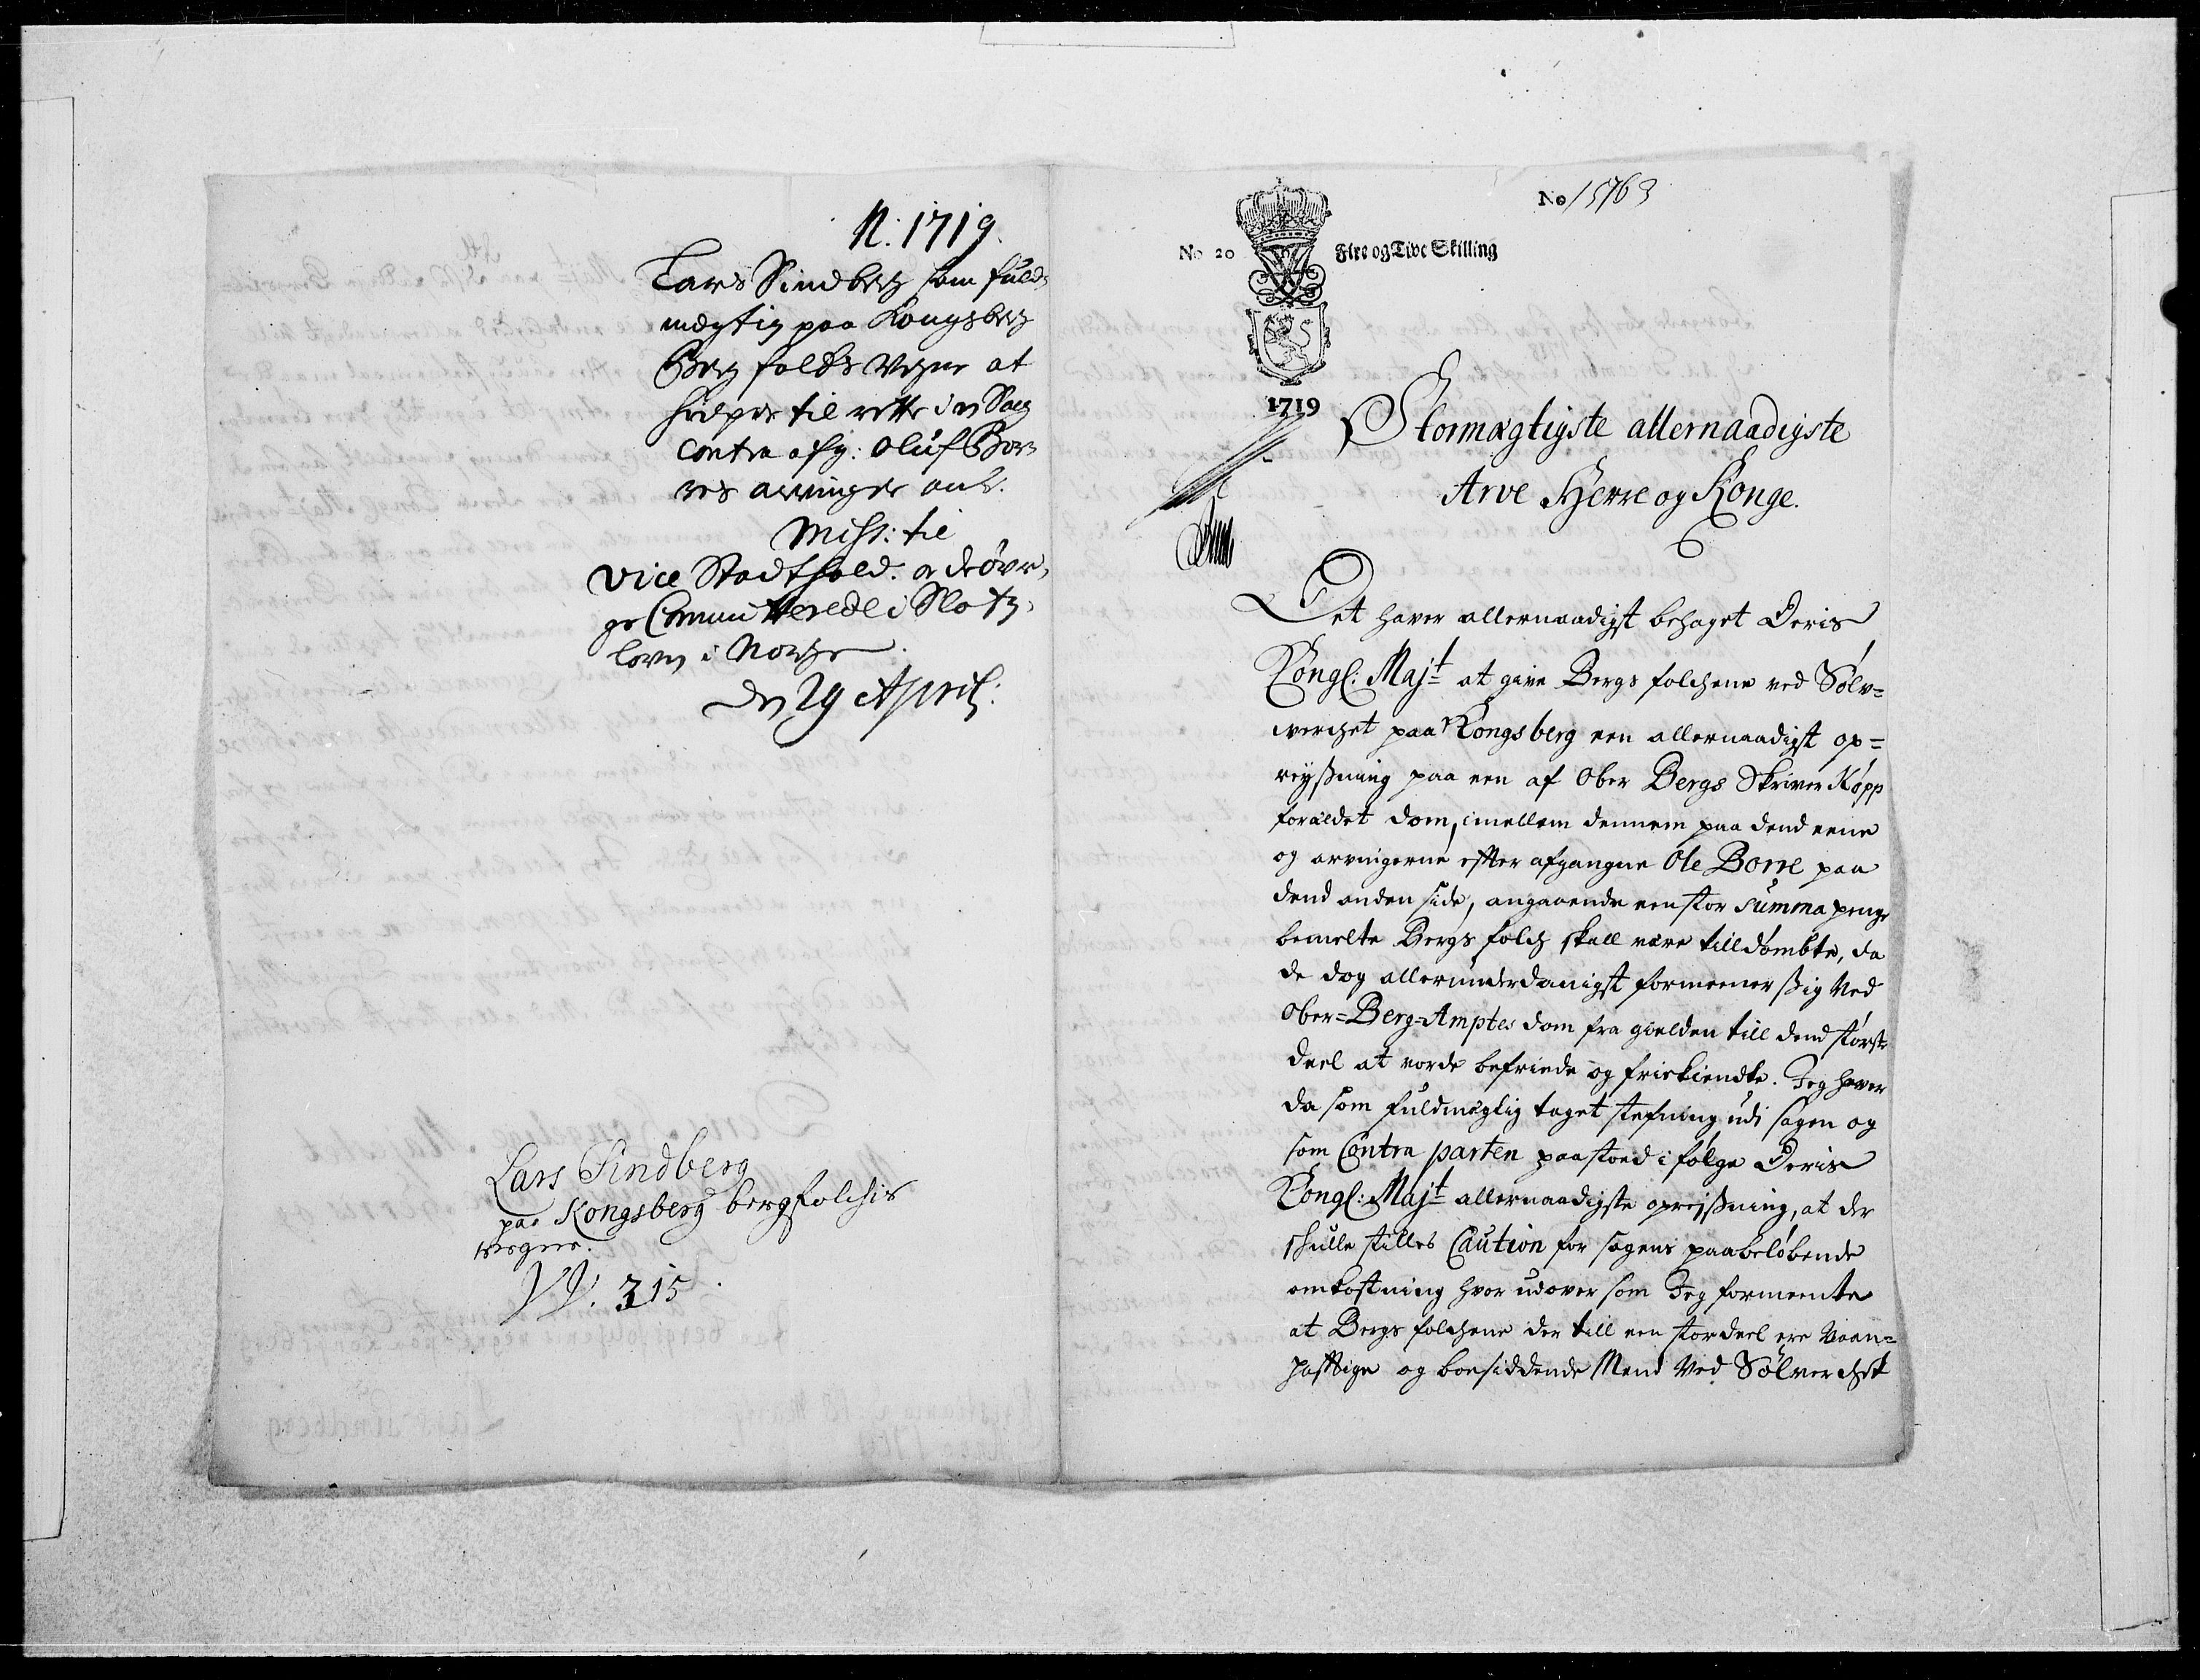 N. 1719.
Lars Sindberg som fuld,
megtig paa Kongsberg
Berg folks Vegne at
hielpes til rette i en Sag
Contra afg: Oluf Bor,
res arvinger anl.
Miss: til
Vice Stadthold. a de övr,
ge Committerede i Slots,
loven i Norge
den 29 April:
Lars Sindberg
paa Kongsberg bergfolchis
vegne.
W. 315.
No 15763
No 20 Fire og Tive Skilling
1719
Stormægtigste allernaadigste
Arve Herre og Konge.
Det haver allernaadigst behaget Deris
Kongl: Majt at give Bergs folchene ved Sølv=
werchet paa Kongsberg een allernaadigst op=
reyßning paa een af Ober Bergs Skriver Köpp
forældet dom, imellem dennem paa dend eene
og arvingerne effter afgangne Ole Borre paa
dend anden side, angaaende een stor Summa penge
bemelte Bergs folch skall være tilldömbte, da
de dog allerunderdanigst formeener ßig Ved
Ober=Berg=Amptes dom fra gielden till dend störste
deel at vorde befriede og friekiendte. Jeg haver
da som fuldmegtig taget stefning udi sagen og
som Contra parten paastoed i fölge Deris
Kongl: Majt allernaadigste opreißning, at der
skulle stilles Caution for sagens paaberöbende
omkostning hvor udover som Jeg formeente
at Bergs folchene der till een stor deel ere Vaan=
hafftige og boesiddende Mend Ved Sölverchet